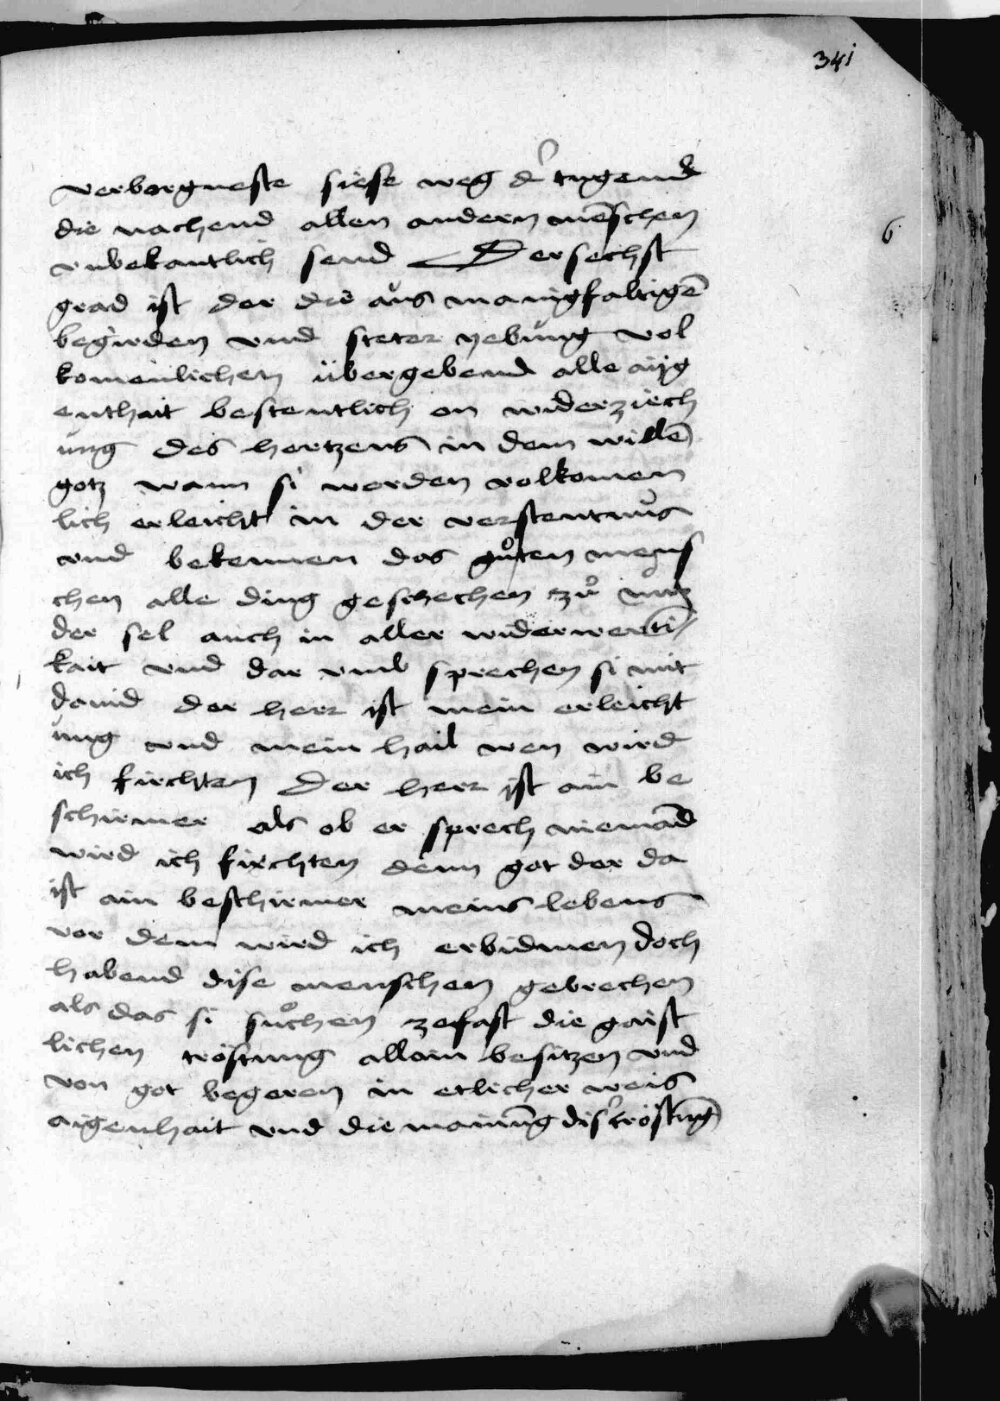 341
verborgneste siese weg d̕ tugend
die nachend allen andern mēschen
vnbekantlich send Der sechst
6
grad ist der die aus manigfaltigē
begirden vnd steter yebung vol
komenlichen übergebend alle aig
enthait bestentlich on widerziech
ung des hertzens in dem willē
gotz wann si werden volkomen
lich erleicht in der verstentnus
vnd bekennen das gůten mens
chen alle ding geschechen zů nůtz
der sel auch in aller widerwerti
kait vnd dar vmb sprechen si mit
dauid der herr ist mein erleicht
ung vnd mein hail wen wird
ich firchten Der herr ist ain be
schirmer als ob er sprech niemād
wird ich firchten denn got der da
ist ain beschirmer meins lebens
vor dem wird ich erbidmen doch
habend dise menschen gebrechen
als das si sůchen zefast die gaist
lichen tröstung allain besitzen vnd
von got begeren in etlicher weis
aigenhait vnd die mainūg dis̕ tröstūg